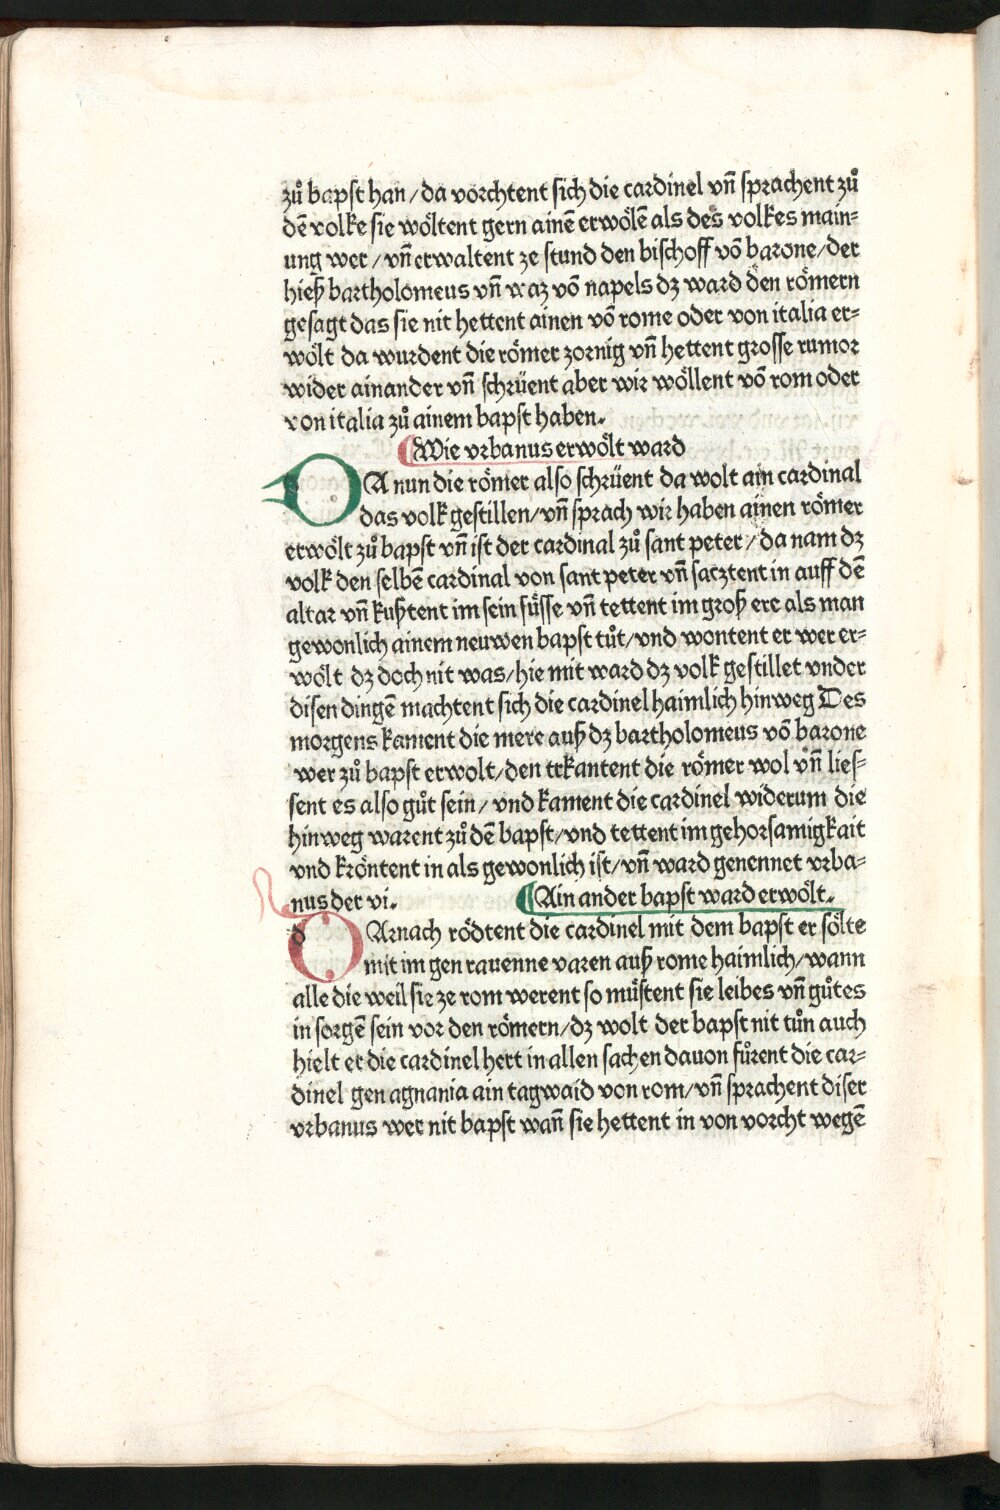 zů bapst han / da vorchtent sich die cardinel vñ sprachent zů
dē volke sie wöltent gern ainē erwölē als des volkes main⸗
ung wer / vñ erwaltent ze stund den bischoff vō barone / der
hieß bartholomeus vñ waz vō napels dz ward den römern
gesagt das sie nit hettent ainen vō rome oder von italia er⸗
wölt da wurdent die römer zornig vñ hettent grosse rumor
wider ainander vñ schrüent aber wir wöllent vō rom oder
von italia zů ainem bapst haben.
Wie vrbanus erwölt ward
DA nun die römer also schrüent da wolt ain cardinal
das volk gestillen / vñ sprach wir haben ainen römer
erwölt zů bapst vñ ist der cardinal zů sant peter / da nam dz
volk den selbē cardinal von sant peter vñ sacztent in auff dē
altar vñ kußtent im sein füsse vñ tettent im groß ere als man
gewonlich ainem neuwen bapst tůt / vnd wontent er wer er⸗
wölt dz doch nit was / hie mit ward dz volk gestillet vnder
disen dingē machtent sich die cardinel haimlich hinweg Des
morgens kament die mere auß dz bartholomeus vō barone
wer zů bapst erwolt / den erkantent die römer wol vñ lies⸗
sent es also gůt sein / vnd kament die cardinel widerum die
hinweg warent zů dē bapst / vnd tettent im gehorsamigkait
vnd kröntent in als gewonlich ist / vñ ward genennet vrba⸗
nus der vi. Ain ander bapst ward erwölt.
DArnach rödtent die cardinel mit dem bapst er sölte
mit im gen rauenne varen auß rome haimlich / wann
alle die weil sie ze rom werent so müstent sie leibes vñ gůtes
in sorgē sein vor den römern / dz wolt der bapst nit tůn auch
hielt er die cardinel hert in allen sachen dauon fůrent die car⸗
dinel gen agnania ain tagwaid von rom / vñ sprachent diser
vrbanus wer nit bapst wañ sie hettent in von vorcht wegē